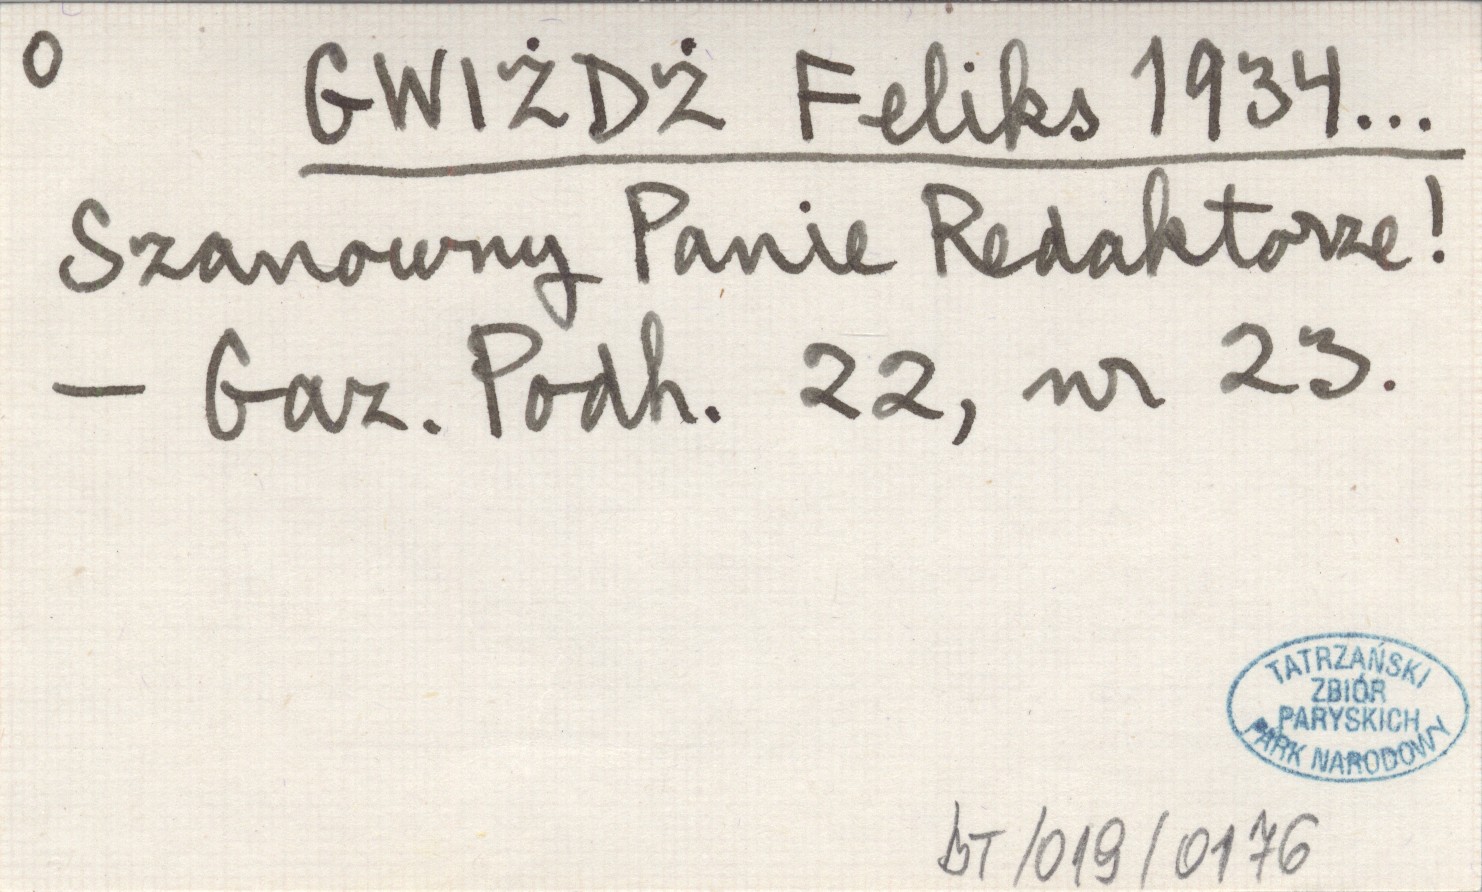 O GWIŻDŻ Feliks 1934...
Szanowny Panie Redaktorze!
— Gaz. Podh. 22, nr 23.
TATRZAŃSKI
ZBIÓR
PARYSKICH
PARK NARODOWY
DT/019/0176